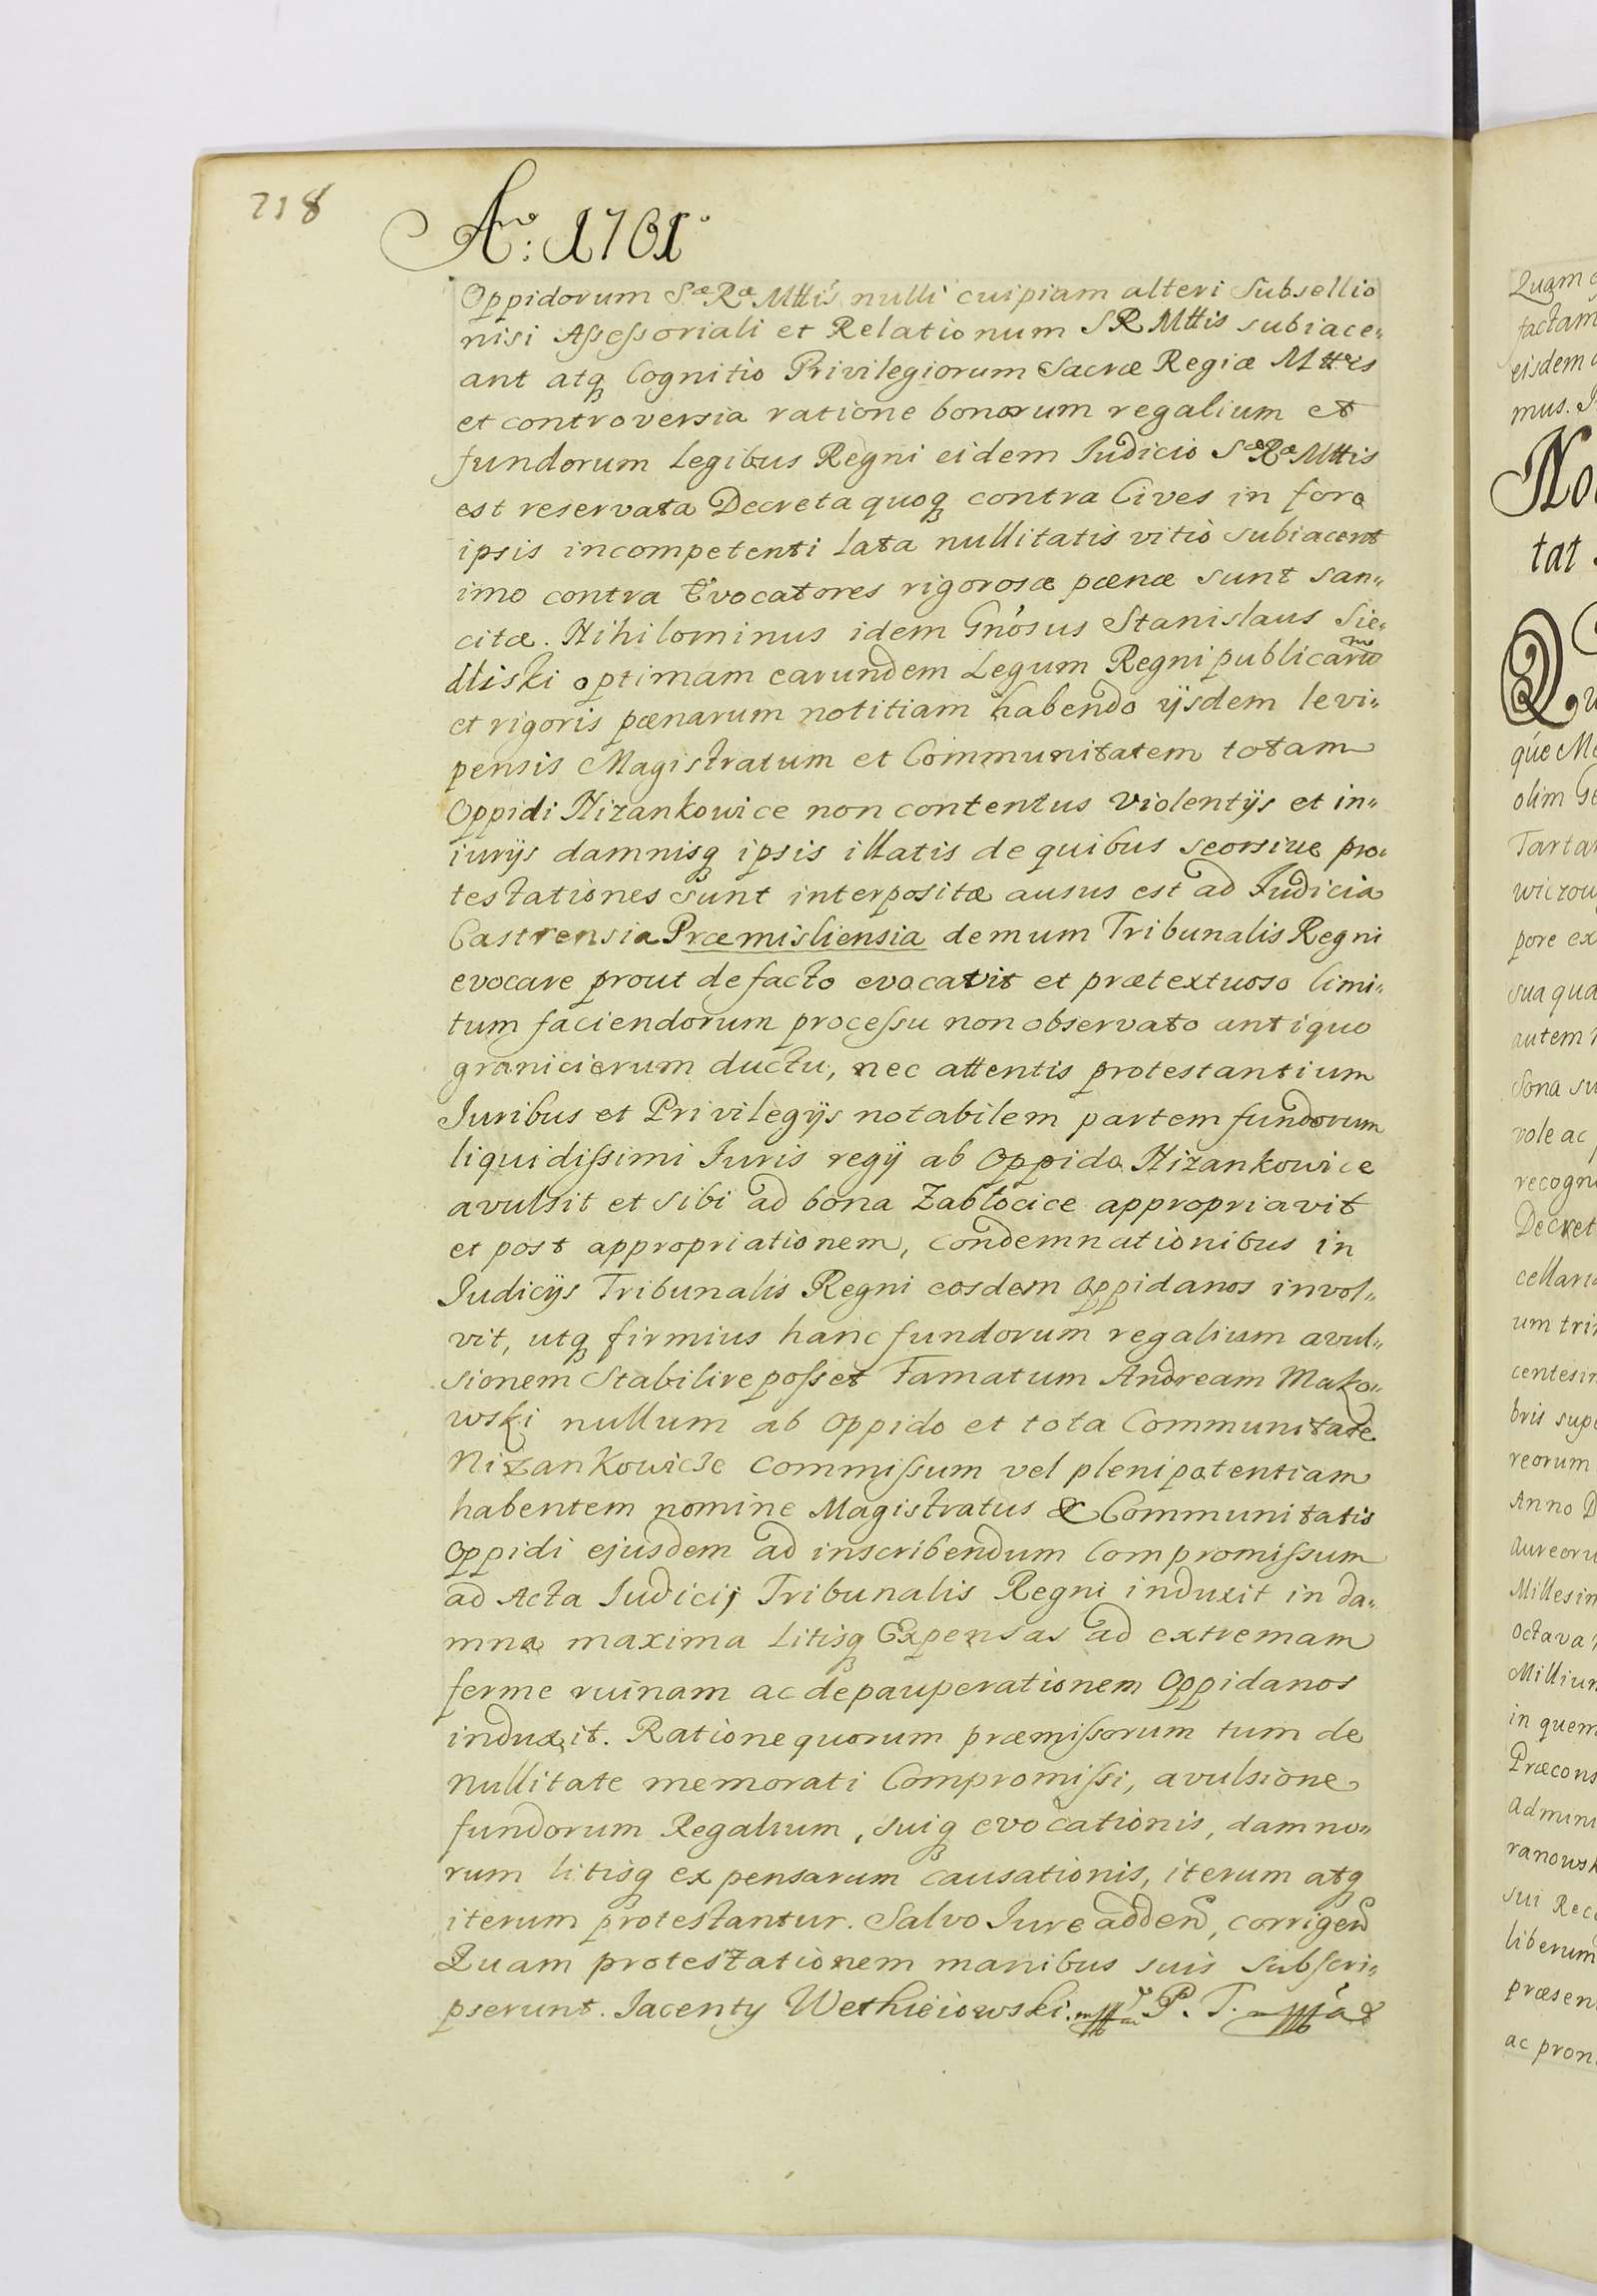 218
Ao: 1701o
Oppidorum Sæ Ræ Mttis nulli cuipiam alteri Subsellio
nisi Aſseſsoriali et Relationum SR Mttis subiace„
ant atq Cognitio Privilegiorum Sacræ Regiæ Mttis
et controversia ratione bonorum regalium et
fundorum Legibus Regni eidem Iudicio Sæ Ræ Mttis
est reservata Decreta quoq contra Cives in foro
ipsis incompetenti lata nullitatis vitio subiacent
imo contra Evocatores rigorosæ pœnæ sunt san„
citæ. Nihilominus idem Gnosus Stanislaus Sie„
dliski optimam earundem Legum Regni publicarum
et rigoris pœnarum notitiam habendo ijsdem levi„
pensis Magistratum et Communitatem totam
Oppidi Nizankowice non contentus violentijs et in„
iurijs damnisq ipsis illatis de quibus seorsive pro„
testationes sunt interpositæ ausus est ad Iudicia
Castrensia Præmisliensia demum Tribunalis Regni
evocare prout de facto evocavit et prætextuoso limi„
tum faciendorum proceſsu non observato antiquo
granicierum ductu, nec attentis protestantium
Iuribus et Privilegijs notabilem partem fundorum
liquidiſsimi Iuris regij ab Oppido Nizankowice
avulsit et sibi ad bona Zabłocice appropriavit
et post appropriationem, condemnationibus in
Iudicijs Tribunalis Regni eosdem Oppidanos invol„
vit, utq firmius hanc fundorum regalium avul„
sionem Stabilire poſset Famatum Andream Mako„
wski nullum ab Oppido et tota Communitate
Nizankowicze Commiſsum vel plenipotentiam
habentem nomine Magistratus & Communitatis
Oppidi ejusdem ad inscribendum Compromiſsum
ad Acta Iudicij Tribunalis Regni induxit in da„
mna maxima Litisq Expensas ad extremam
ferme ruinam ac depauperationem Oppidanos
induxit. Ratione quorum præmiſsorum tum de
Nullitate memorati Compromiſsi, avulsione
fundorum Regalium, suiq evocationis, damno„
rum litisq expensarum causationis, iterum atq
iterum protestantur. Salvo Iure adden, corrigen
Quam protestationem manibus suis Subſcri„
pserunt. Iacenty Wethieiowski. P. T.
Quam
factam
eisdem
mus.
tat
que Me
olim Ge
Tartar
wiczow
pore ex
sua qua
autem
Sona su
vole ac
recogn
Decret
cellari
um tri
centesi
bris sup
reorum
Anno D
Aureoru
Millesim
octava
Milliu
in quem
Præcons
Admini
ranowsk
sui Rec
liberum
præsen
ac pron